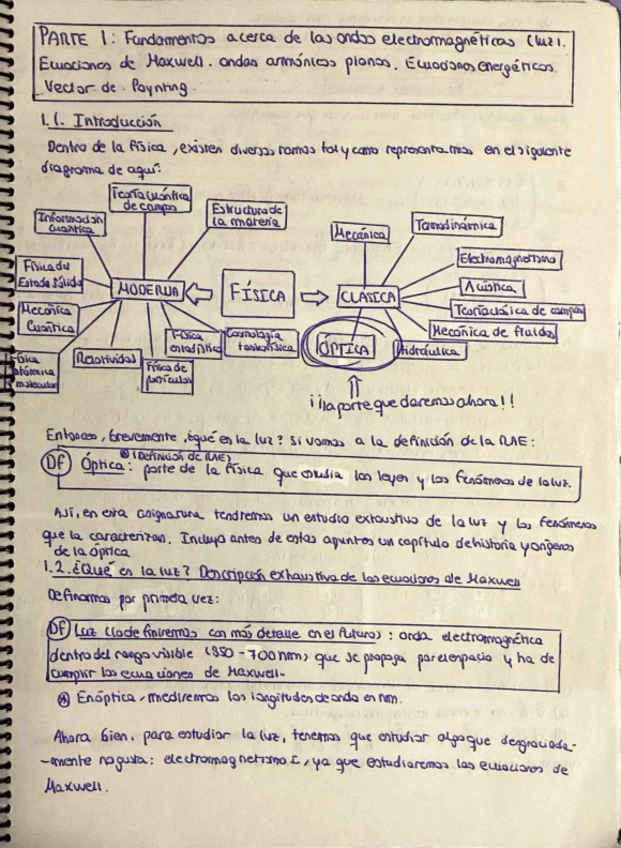 PARTE 1: Fundamentos acerca de las ondas electromagnéticas (luz).
Ecuaciones de Maxwell. ondas armónicas planas. Ecuaciones energéticas.
Vector de Poynting.
1.1. Introducción
Dentro de la física, existen diversas ramas tal y como representamos en el siguiente
diagrama de aquí:
Teoría cuántica
de campos
Información
cuántica
Estructura de
la materia
Física del
Estado Sólido
MODERNA
Mecánica
Cuántica
Física
atómica
molecular
Relatividad
Física de
partículas
Física
estadística
Cosmología
FÍSICA
Mecánica
Termodinámica
Electromagnetismo
CLÁSICA
Acústica
Teoría clásica de campos
Mecánica de fluidos
ÓPTICA
Hidráulica
¡¡la parte que daremos ahora!!
Entonces, brevemente, ¿qué es la luz? Si vamos a la definición de la RAE:
(Definición de RAE)
Df Óptica: parte de la física que estudia las leyes y los fenómenos de la luz.
Así, en esta asignatura tendremos un estudio exhaustivo de la luz y los fenómenos
que la caracterizan. Incluyo antes de estos apuntes un capítulo de historia y orígenes
de la óptica
1.2. ¿Qué es la luz? Descripción exhaustiva de las ecuaciones de Maxwell
Definamos por primera vez:
Df Luz (lo definiremos con más detalle en el futuro): onda electromagnética
dentro del rango visible (350-700nm) que se propaga por el espacio y ha de
cumplir las ecuaciones de Maxwell.
En óptica, mediremos las longitudes de onda en nm.
Ahora bien, para estudiar la luz, tenemos que estudiar algo que desgraciada-
-mente no gusta: electromagnetismo I, ya que estudiaremos las ecuaciones de
Maxwell.